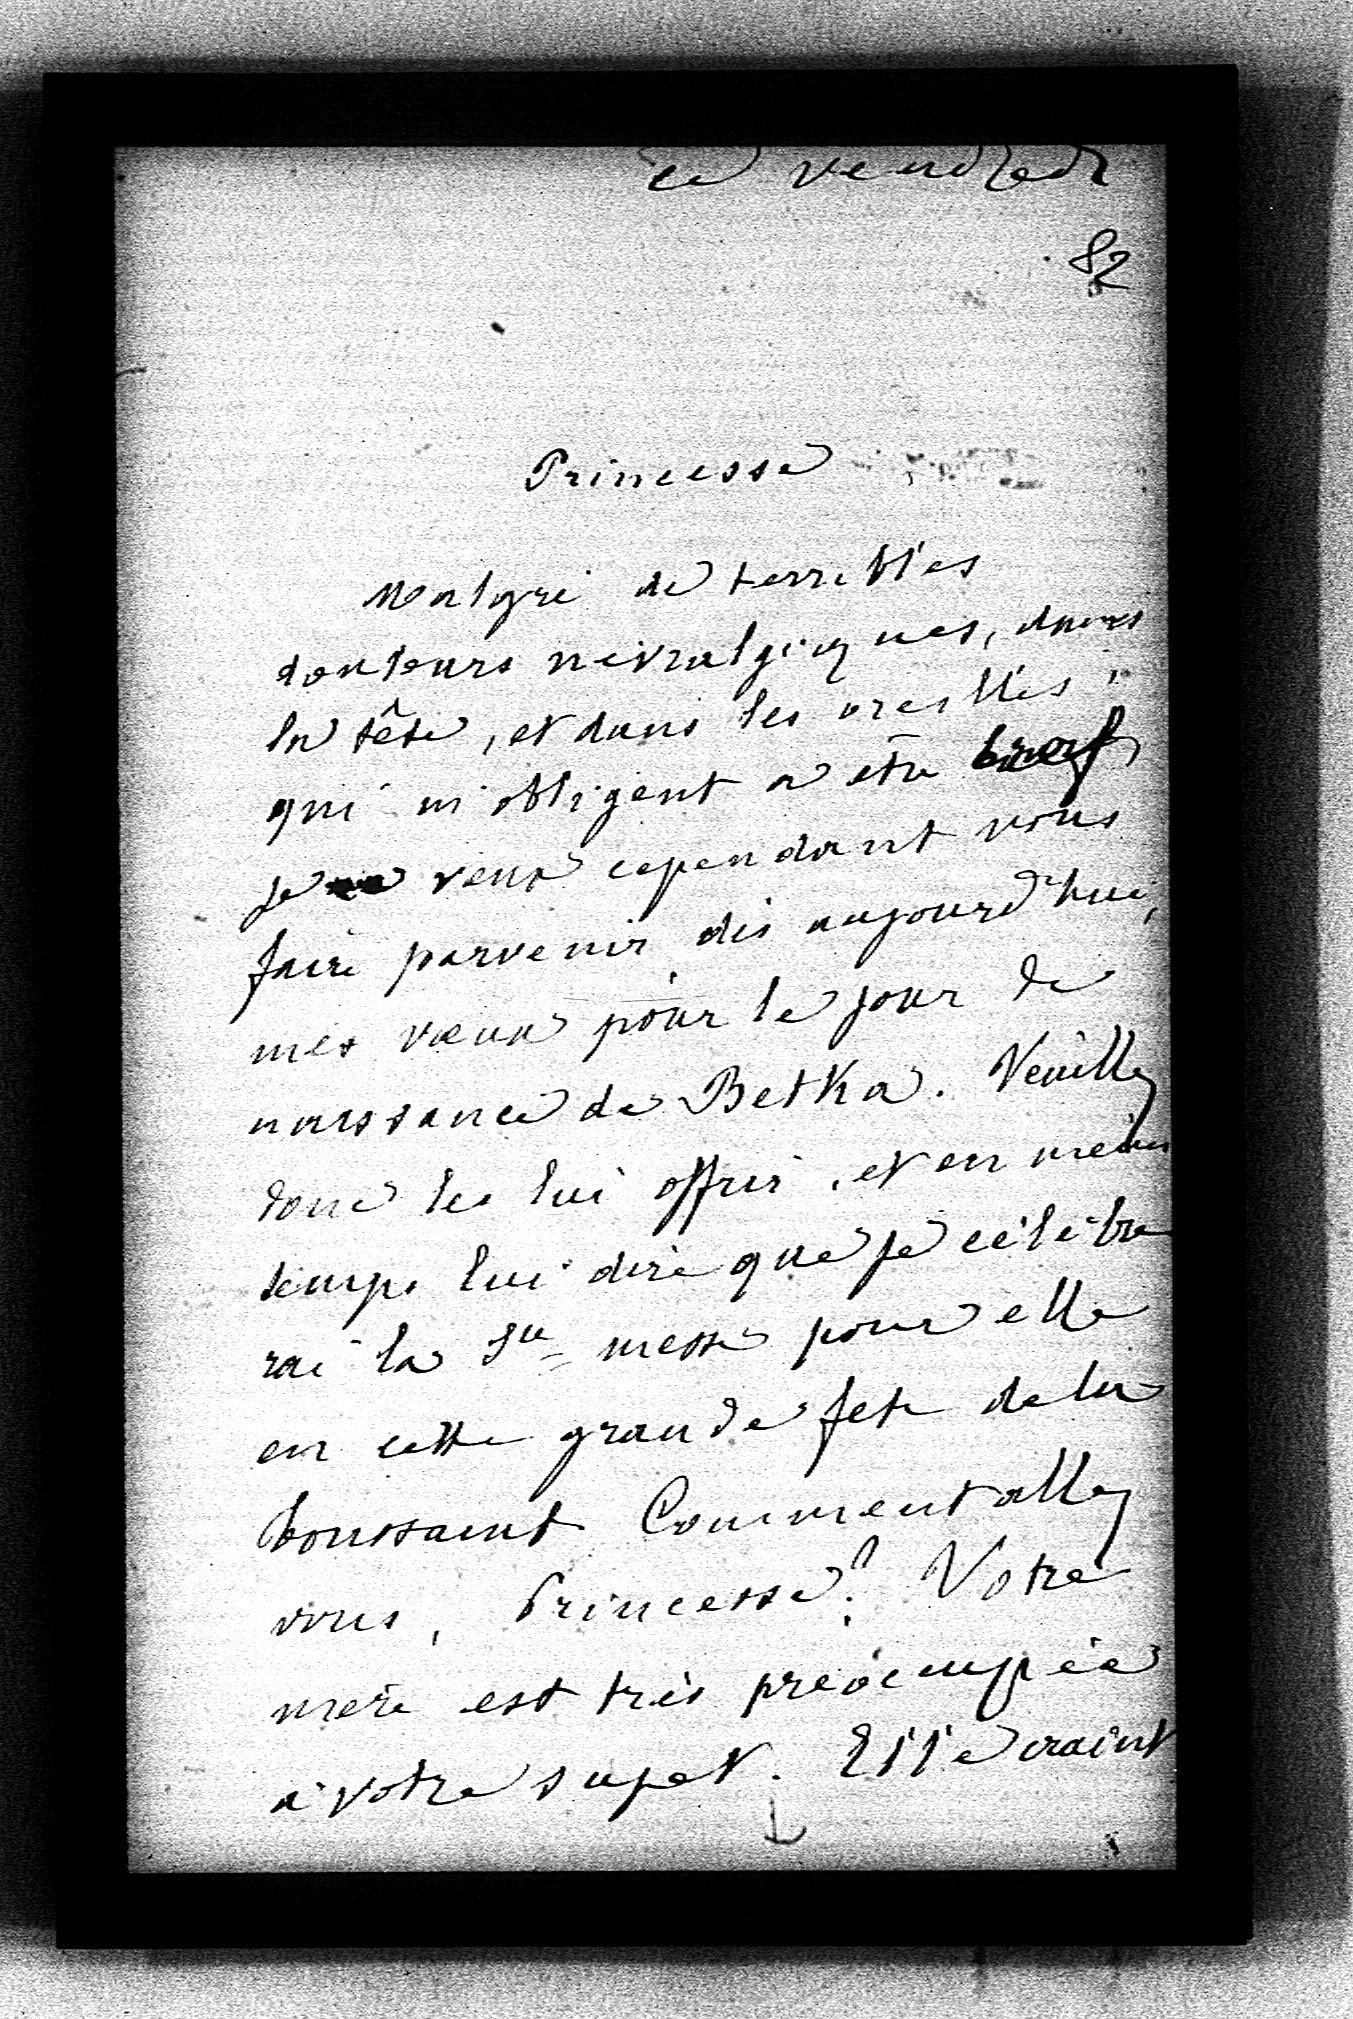 ce vendredi
82
Princesse
Malgré de terribles
douleurs névralgiques, dans
la tête, et dans les oreilles,
qui m'obligent a être bref,
je veux cependant vous
faire parvenir dès aujourd'hui,
mes vœux pour le jour de
naissance de Betka. Veuillez
donc les lui offrir, et en même
temps lui dire que je célèbre
rai la Ste messe pour elle
en cette grande fete de la
Toussaint Comment allez
vous, Princesse? Votre
mère est très préoccupée
a votre sujet. Elle craint